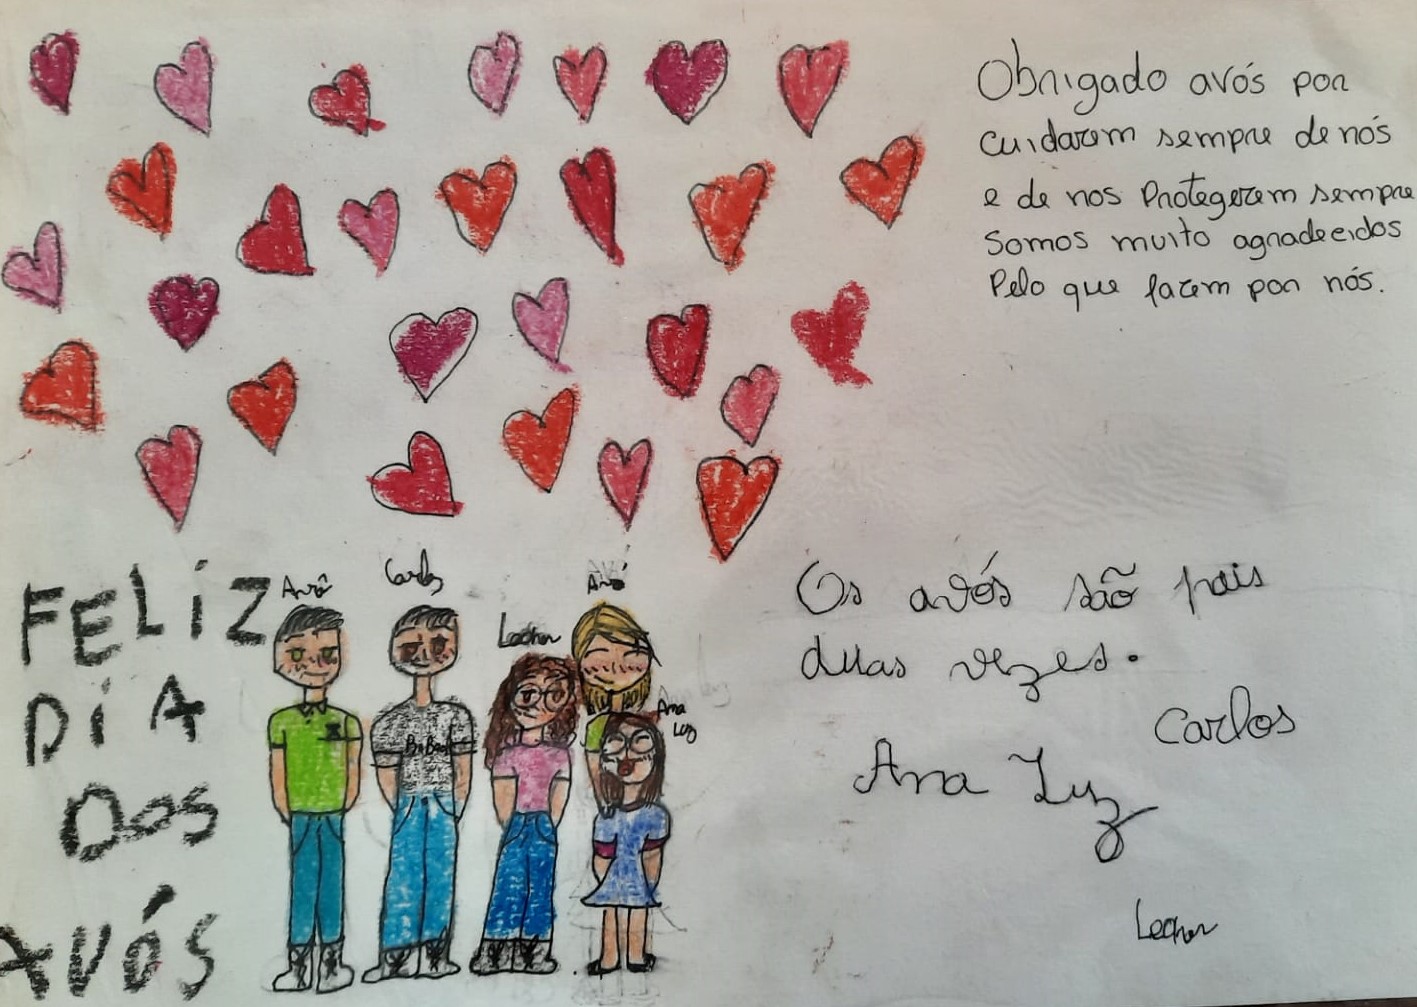 Obrigado avós por
cuidarem sempre de nós
e de nos Protegerem sempre
Somos muito agradecidos
Pelo que fazem por nós.
FELIZ
DIA
DOS
AVÓS
Avô
Carlos
Avó
Ana
Luz
Os avós são pais
duas vezes.
Carlos
Ana Luz